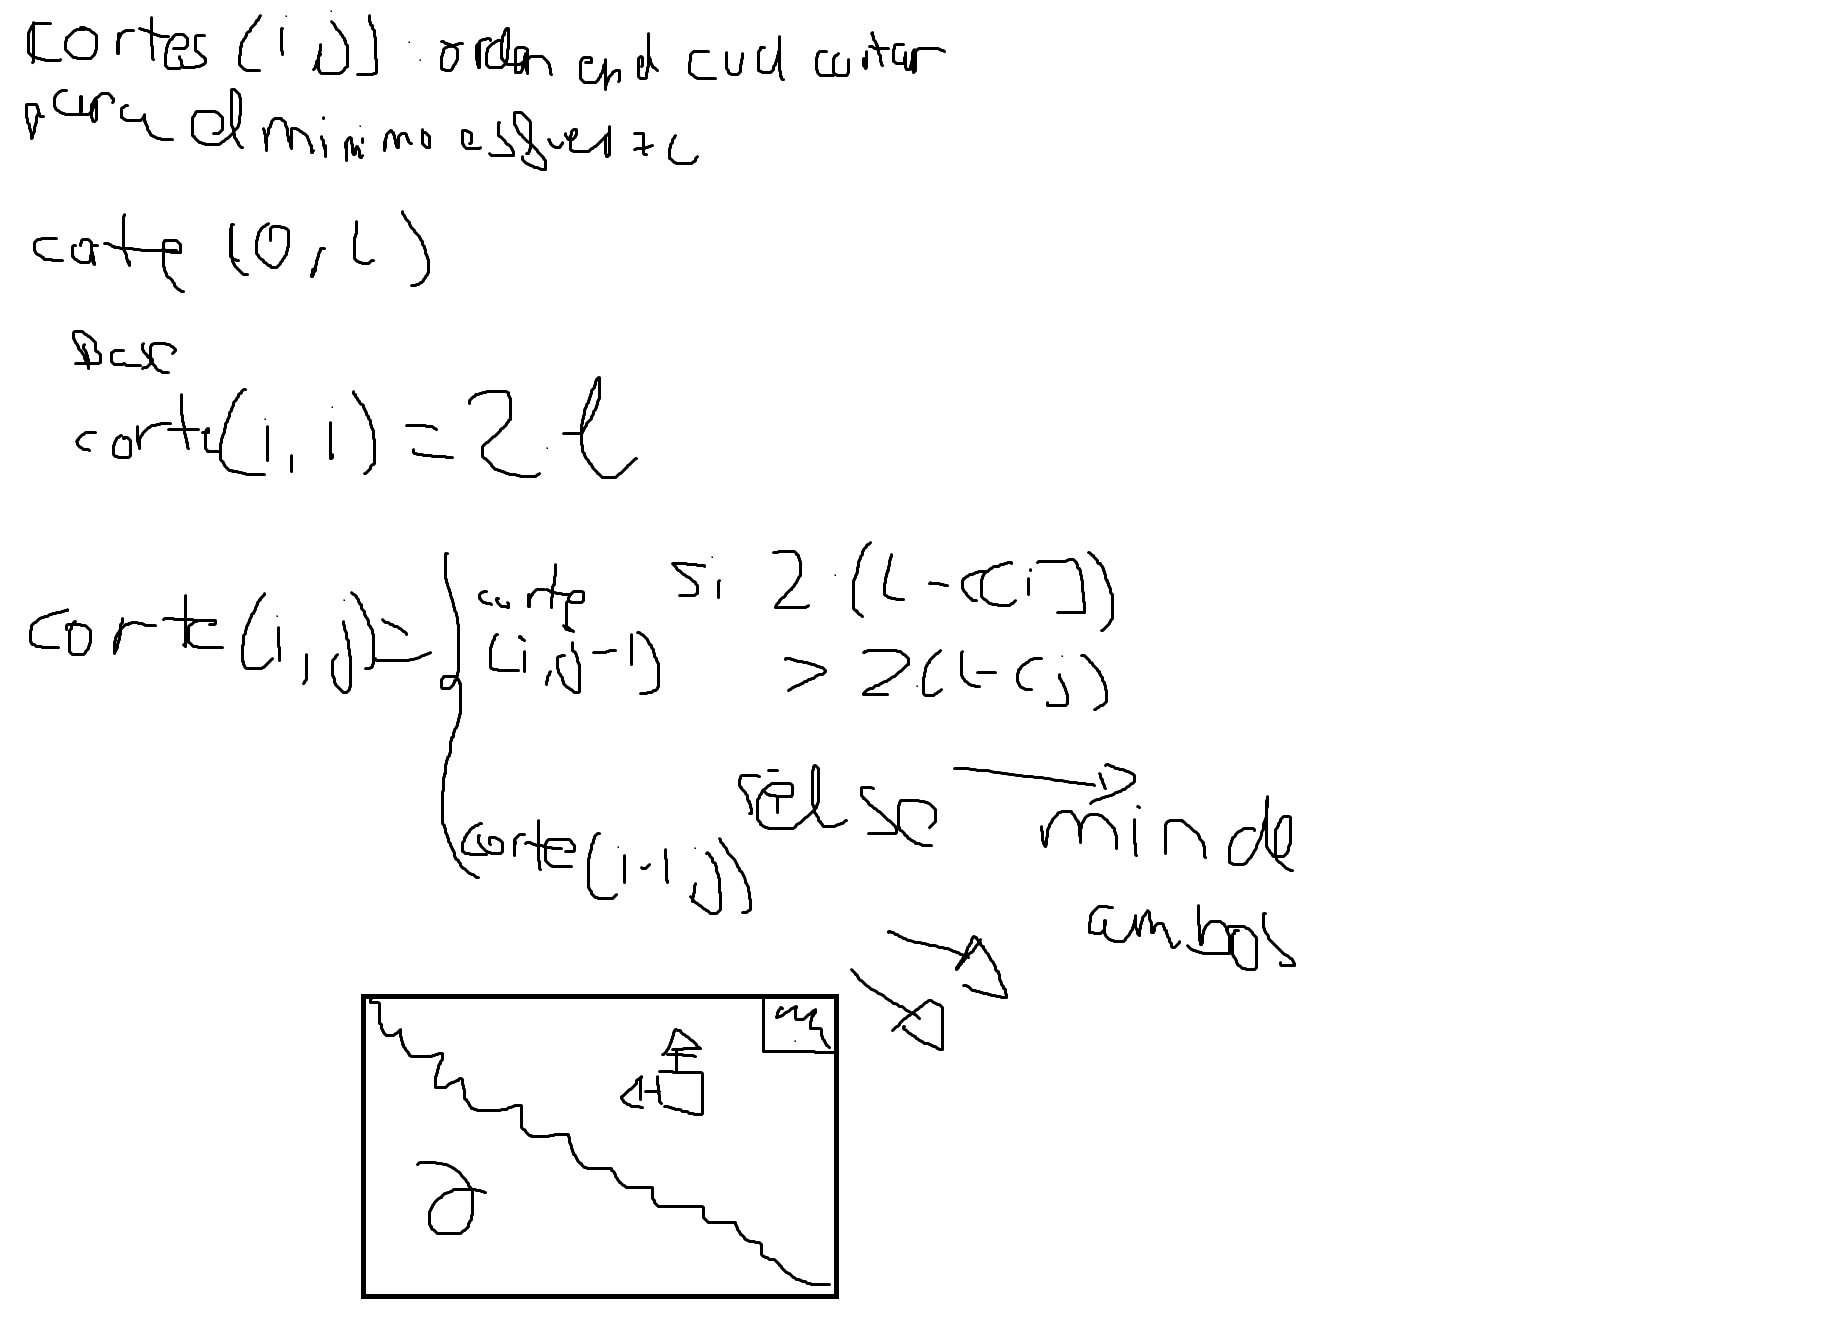 cortes (i, j) : orden en el cual cortar
para el minimo esfuerzo
corte (0, L)
Base
corte(i, i) = 2 · l
corte(i, j) = corte (i, j-1) si 2 · (L - C[i])
> 2(L - Cj)
corte(i-1, j) else → min de
ambos